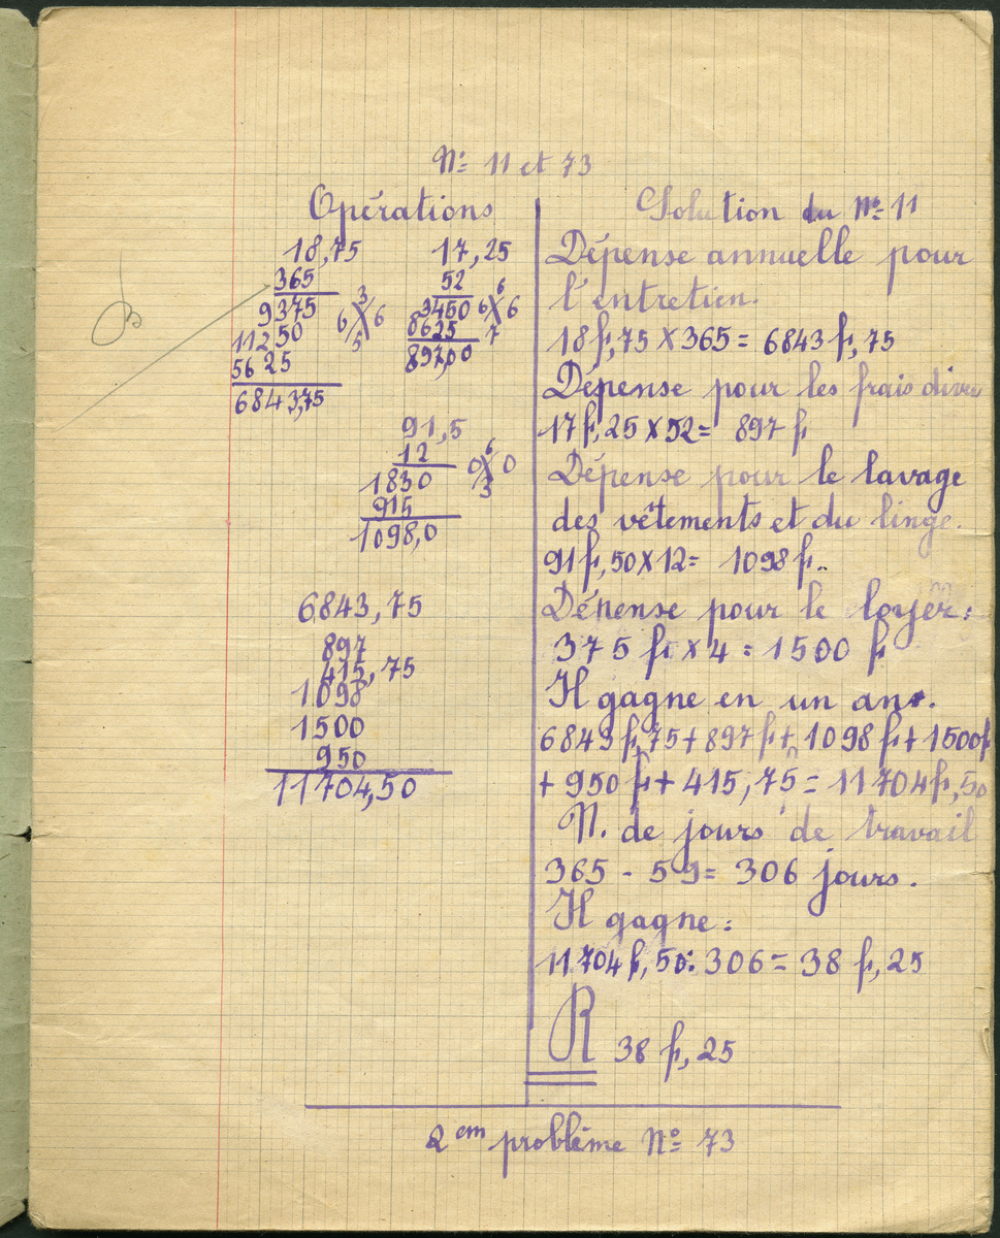 N° 11 et 73
Opérations
18,75
365
9375
11250
5625
6843,75
3
6 X 6
5
17,25
52
3450
8625
897,00
6
6 X 6
7
91,5
12
1830
915
1098,0
6
0 X 0
3
6843,75
897
415,75
1098
1500
950
11704,50
Solution du N° 11
Dépense annuelle pour
l'entretien.
18 f,75 X 365 = 6843 f,75
Dépense pour les frais divers
17 f,25 X 52 = 897 f
Dépense pour le lavage
des vêtements et du linge.
91 f,50 X 12 = 1098 f..
Dépense pour le loyer:
375 f X 4 = 1500 f
Il gagne en un an.
6843 f,75 + 897 f + 1098 f + 1500 f
+ 950 f + 415,75 = 11704 f,50
N. de jours de travail
365 - 59 = 306 jours.
Il gagne:
11704 f,50 : 306 = 38 f,25
R 38 f,25
2em problème N° 73